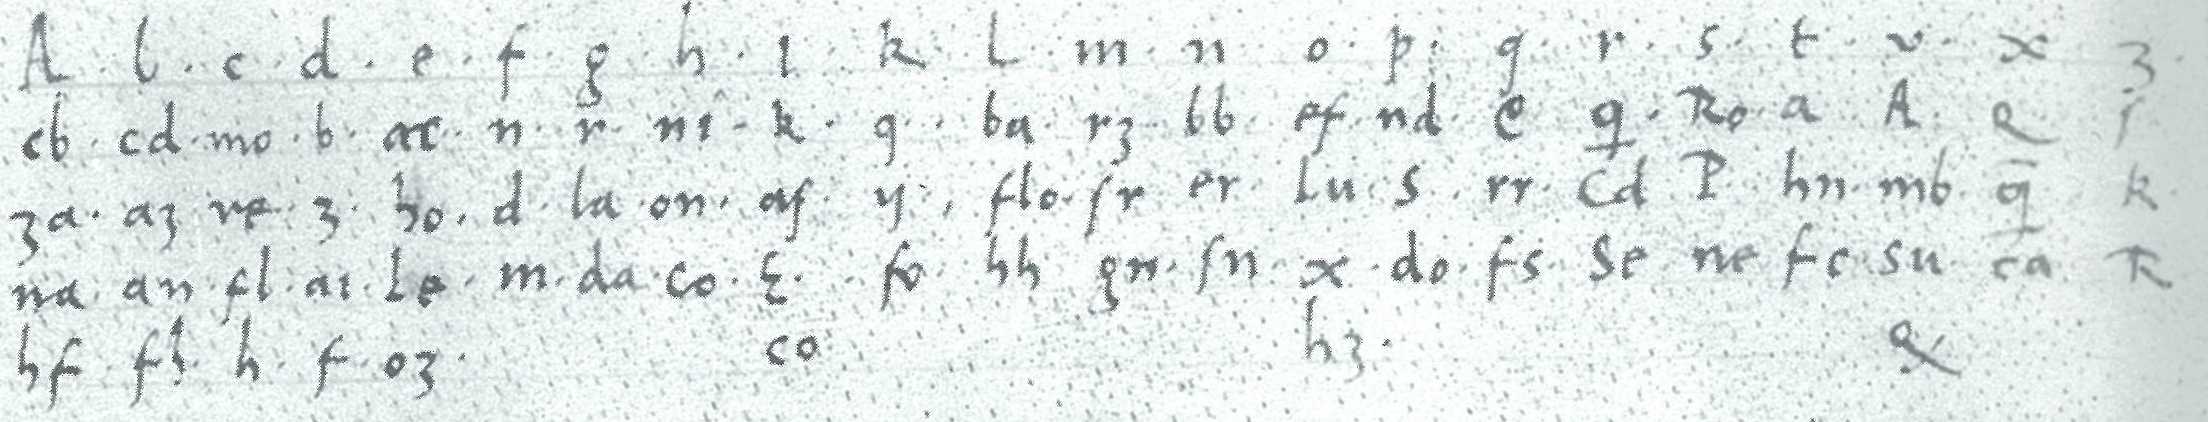 A . b . c . d . e . f . g . h . i . k . l . m . n . o . p . q . r . s . t . v . x ʒ
cb . cd . mo . b . ac . n . r . ni . k . q . ba . rʒ . bb . ef . nd . e . q . Ro . a . A . R ſ
ʒa . aʒ . ve . ʒ . ho . d . la . on . aſ . y . flo . ſr er lu . s . rr . Cd P hn . mb . q̄ k
na . an . fl . ai . le . m . da . co . ξ . fo . hh gn . ſn . x . do . fs . Se ne fc . su ca R
hf . fh . h . f . oʒ . co hʒ . R